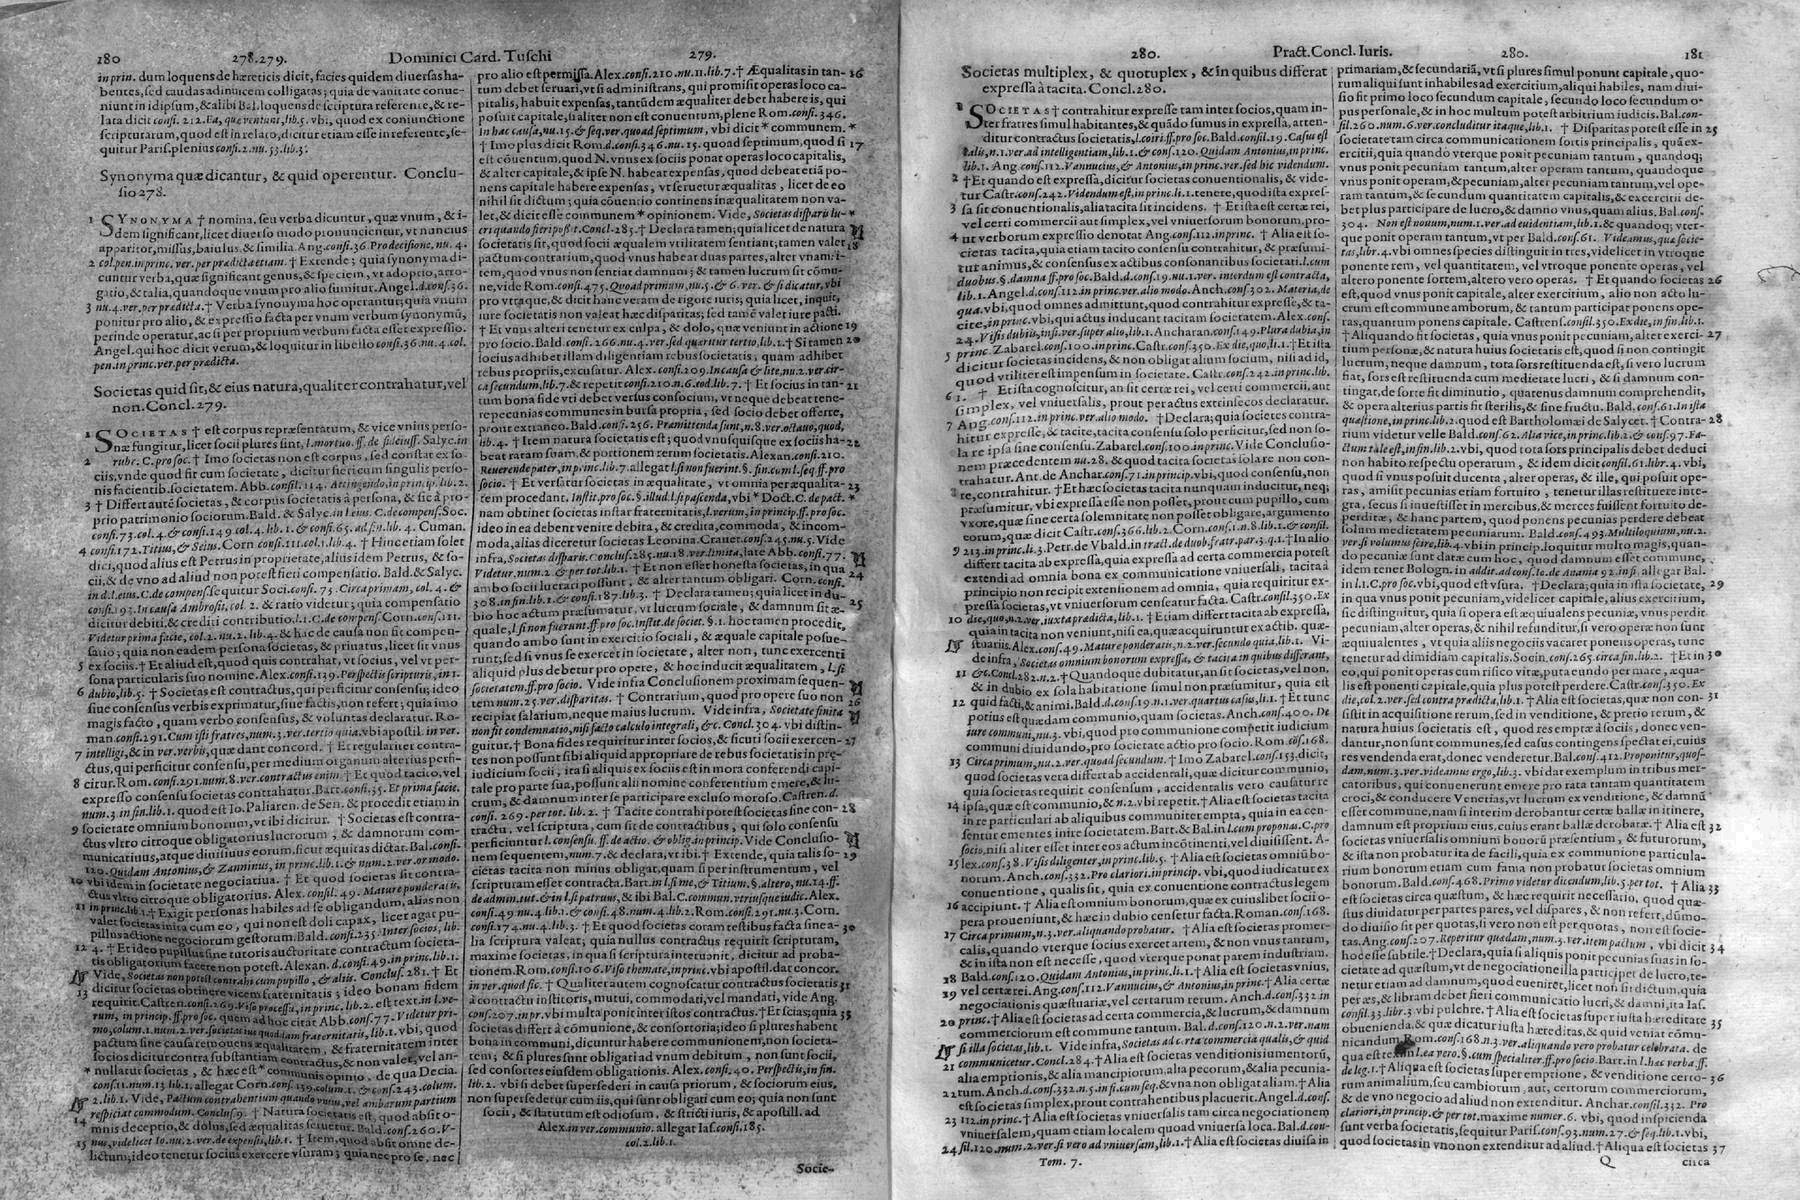 180 278.279. Dominici Card. Tuschi 279.
in prin. dum loquens de hæreticis dicit, facies quidem diuersas ha-
bentes, sed caudas adinuicem colligatas; quia de vanitate conue-
niunt in idipsum, & alibi Bal. loquens de scriptura referente, & re-
lata dicit consi. 212. Ea, quæ ventuni, lib. 5. vbi, quod ex coniunctione
scripturarum, quod est in relato, dicitur etiam esse in referente, se-
quitur Paris. plenius consi. 2. nu. 53. lib. 3.
Synonyma quæ dicantur, & quid operentur. Conclu-
sio 278.
1 SYNONYMA † nomina, seu verba dicuntur, quæ vnum, & i-
dem significant, licet diuerso modo pronuncientur, vt nuncius
apparitor, missus, baiulus, & similia. Ang. consi. 36. Pro decisione, nu. 4.
2 col. pen. in princ. ver. per prædicta etiam. † Extende; quia synonyma di-
cuntur verba, quæ significant genus, & speciem, vt adoptio, arro-
gatio, & talia, quandoque vnum pro alio sumitur. Angel. d. consi. 36.
3 nu. 4. ver. per prædicta. † Verba synonyma hoc operantur; quia vnum
ponitur pro alio, & expressio facta per vnum verbum synonymū,
perinde operatur, ac si per proprium verbum facta esset expressio.
Angel. qui hoc dicit verum, & loquitur in libello consi. 36. nu. 4. col.
pen. in princ. ver. per prædicta.
Societas quid sit, & eius natura, qualiter contrahatur, vel
non. Concl. 279.
1 SOCIETAS † est corpus repræsentatum, & vice vnius perso-
næ fungitur, licet socij plures sint, l. mortuo. ff. de fideiuss. Salyc. in
2 rubr. C. pro soc. † Imo societas non est corpus, sed constat ex so-
ciis, vnde quod fit cum societate, dicitur fieri cum singulis perso-
nis facientib. societatem. Abb. consil. 114. Attingendo, in princip. lib. 2.
3 † Differt autē societas, & corpus societatis à persona, & sic à pro-
prio patrimonio sociorum. Bald. & Salyc. in l. eius. C. de compens. Soc.
consi. 73. col. 4. lib. 1. & consi. 65. ad fin. lib. 4. Cuman.
4 consi. 172. Titius, & Seius. Corn consi. 111. col. 1. lib. 4. † Hinc etiam solet
dici, quod alius est Petrus in proprietate, alius idem Petrus, & so-
cii, & de vno ad aliud non potest fieri compensatio. Bald. & Salyc.
in d. l. eius. C. de compens. sequitur Soci. consi. 73. Circa primam, col. 4. &
consi. 193. In causa Ambrosij, col. 2. & ratio videtur; quia compensatio
dicitur debiti, & crediti contributio. l. 1. C. de compens. Corn. consi. 111.
Videtur prima facie, col. 2. nu. 2. lib. 4. & hac de causa non fit compen-
satio; quia non eadem persona societas, & priuatus, licet sit vnus
5 ex sociis. † Et aliud est, quod quis contrahat, vt socius, vel vt per-
sona particularis suo nomine. Alex. consi. 139. Perspectis scripturis, in 1.
6 dubio, lib. 5. † Societas est contractus, qui perficitur consensu; ideo
siue consensus verbis exprimatur, siue factis, non refert; quia imo
magis facto, quam verbo consensus, & voluntas declaratur. Ro-
man. consi. 291. Cum isti fratres, num. 3. ver. tertio quia. vbi apostil. in ver.
7 intelligi, & in ver. verbis, quæ dant concord. † Et regulariter contra-
ctus, qui perficitur consensu, per medium organum alterius perfi-
8 citur. Rom. consi. 291. num. 8. ver. contractus enim. † Et quod tacito, vel
expresso consensu societas contrahatur. Bart. consi. 35. Et prima facie.
num. 3. in fin. lib. 1. quod est Io. Paliaren. de Sen. & procedit etiam in
9 societate omnium bonorum, vt ibi dicitur. † Societas est contra-
ctus vltro citroque obligatorius lucrorum, & damnorum com-
municatiuus, atque diuisiuus eorum. sicut æquitas dictat. Bal. consi.
120. Quidam Antonius, & Zanninus, in princ. lib. 1. & num. 2. ver. or modo.
10 vbi idem in societate negociatiua. † Et quod societas sit contra-
ctus vltro citroque obligatorius. Alex. consil. 49. Mature ponderatis,
11 in princ. lib. 1. † Exigit personas habiles ad se obligandum, alias non
valet societas inita cum eo, qui non est doli capax, licet agat pu-
pillus actione negociorum gestorum. Bald. consi. 235. Inter socios, lib.
12 4. † Et ideo pupillus sine tutoris auctoritate contractum societa-
tis obligatorium facere non potest. Alexan. d. consi. 49. in princ. lib. 1.
Vide, Societas non potest contrahi cum pupillo, & aliis, Conclus. 281. † Et
13 dicitur societas obtinere vicem fraternitatis; ideo bonam fidem
requirit. Castren. consi. 269. Viso processu, in princ. lib. 2. est text. in l. ve-
rum, in princip. ff. pro soc. quem ad hoc citat Abb. consi. 77. Videtur pri-
mo, colum. 1. num. 2. ver. societas ius quoddam fraternitatis, lib. 1. vbi, quod
pactum sine causa remouens æqualitatem, & fraternitatem inter
socios dicitur contra substantiam contractus, & non valet, vel an-
* nullatur societas, & hæc est * communis opinio, de qua Decia.
consi. 11. num. 13. lib. 1. allegat Corn. consi. 139. colum. 1. & consi. 243. colum.
2. lib. 1. Vide, Pactum contrahentium quando vnius, vel ambarum partium
respiciat commodum. Conclus. 9. † Natura societatis est, quod absit o-
14 mnis deceptio, & dolus, sed æqualitas seruetur. Bald. consi. 260. V-
nus, videlicet Io. nu. 2. ver. de expensis, lib. 1. † Item, quod absit omne de-
15 lictum; ideo tenetur socius exercere vsuram; quia nec pro se, nec
pro alio est permissa. Alex. consi. 210. nu. 11. lib. 7. † Æqualitas in tan- 16
tum debet seruari, vt si administrans, qui promisit operas loco ca-
pitalis, habuit expensas, tantūdem æqualiter debet habere is, qui
posuit capitale, si aliter non est conuentum, plene Rom. consi. 346.
In hac causa, nu. 15. & seq. ver. quoad septimum, vbi dicit * communem. *
† Imo plus dicit Rom. d. consi. 346. nu. 15. quoad septimum, quod si 17
est cōuentum, quod N. vnus ex sociis ponat operas loco capitalis,
& alter capitale, & ipse N. habeat expensas, quod debeat etiā po-
nens capitale habere expensas, vt seruetur æqualitas, licet de eo
nihil sit dictum; quia cōuentio continens inæqualitatem non va-
let, & dicit esse communem * opinionem. Vide, Societas disparis lu- *
cri quando fieri possit. Concl. 285. † Declara tamen; quia licet de natura
societatis sit, quod socii æqualem vtilitatem sentiant; tamen valet 18
pactum contrarium, quod vnus habeat duas partes, alter vnam: i-
tem, quod vnus non sentiat damnum; & tamen lucrum sit cōmu-
ne, vide Rom. consi. 475. Quoad primum, nu. 5. & 6. ver. & si dicatur, vbi
pro vtraque, & dicit hanc veram de rigore iuris; quia licet, inquit,
iure societatis non valeat hæc disparitas; sed tamē valet iure pacti.
† Et vnus alteri tenetur ex culpa, & dolo, quæ veniunt in actione 19
pro socio. Bald. consi. 266. nu. 4. ver. sed quæritur tertio, lib. 1. † Si tamen 20
socius adhibet illam diligentiam rebus societatis, quam adhibet
rebus propriis, excusatur. Alex. consi. 209. In causa & lite, nu. 2. ver. cir-
ca secundum, lib. 7. & repetit consi. 210. n. 6. eod. lib. 7. † Et socius in tan- 21
tum bona fide vti debet versus consocium, vt neque debeat tene-
re pecunias communes in bursa propria, sed socio debet offerre,
pront extraneo. Bald. consi. 256. Præmittenda sunt, n. 8. ver. octauo, quod,
lib. 4. † Item natura societatis est; quod vnusquisque ex sociis ha- 22
beat ratam suam, & portionem rerum societatis. Alexan. consi. 210.
Reuerende pater, in princ. lib. 7. allegat l. si non fuerint. §. fin. cum l. seq. ff. pro
socio. † Et versatur societas in æqualitate, vt omnia per æqualita- 23
tem procedant. Instit. pro soc. §. illud. l. si pascenda, vbi * Doct. C. de pact. *
nam obtinet societas instar fraternitatis, l. verum, in princip. ff. pro soc.
ideo in ea debent venire debita, & credita, commoda, & incom-
moda, alias diceretur societas Leonina. Crauet. consi. 245. nu. 5. Vide
infra, Societas disparis. Conclus. 285. nu. 18. ver. limita, late Abb. consi. 77.
Videtur. num. 2. & per tot. lib. 1. † Et non esset honesta societas, in qua
ambo socii lucri possunt, & alter tantum obligari. Corn. consi. 24
308. in fin. lib. 1. & consi. 187. lib. 3. † Declara tamen; quia licet in du-
bio hoc adeo præsumatur, vt lucrum sociale, & damnum sit æ- 25
quale, l. si non fuerunt. ff. pro soc. Instit. de societ. §. 1. hoc tamen procedit,
quando ambo sunt in exercitio sociali, & æquale capitale posue-
runt; sed si vnus se exercet in societate, alter non, tunc exercenti
aliquid plus debetur pro opere, & hoc inducit æqualitatem, l. si
societatem. ff. pro socio. Vide infra Conclusionem proximam sequen-
tem num. 25. ver. disparitas. † Contrarium, quod pro opere suo non 26
recipiat salarium, neque maius lucrum. Vide infra, Societate finita
non fit condemnatio, nisi facto calculo integrali, &c. Concl. 304. vbi distin-
guitur. † Bona fides requiritur inter socios, & sicuti socii exercen- 27
tes non possunt sibi aliquid appropriare de rebus societatis in præ-
iudicium socii, ita si aliquis ex sociis est in mora conferendi capi-
tale pro parte sua, possunt alii nomine conferentium emere, & lu-
crum, & damnum inter se participare excluso moroso. Castren. d.
consi. 269. per tot. lib. 2. † Tacite contrahi potest societas sine con- 28
tractu, vel scriptura, cum sit de contractibus, qui solo consensu
perficiuntur l. consensu. ff. de actio. & oblig. in princip. Vide Conclusio-
nem sequentem, num. 7. & declara, vt ibi. † Extende, quia talis so- 29
cietas tacita non minus obligat, quam si per instrumentum, vel
scripturam esset contracta. Bart. in l. sime, & Titium. §. altero, nu. 14. ff.
de admin. tut. & in l. si patruus, & ibi Bal. C. commun. vtriusque iudic. Alex.
consi. 49. nu. 4. lib. 1. & consi. 48. num. 4. lib. 2. Rom. consi. 291. nu. 3. Corn.
consi. 174. nu. 4. lib. 3. † Et quod societas coram testibus facta sine a- 30
lia scriptura valeat; quia nullus contractus requirit scripturam,
maxime societas, in qua si scriptura interuenit, dicitur ad proba-
tionem. Rom. consi. 106. Viso themate, in princ. vbi apostil. dat concor.
in ver. quod sic. † Qualiter autem cognoscatur contractus societatis 31
à contractu institoris, mutui, commodati, vel mandati, vide Ang.
consi. 207. in pr. vbi multa ponit inter istos contractus. † Et scias; quia 33
societas differt à cōmunione, & consortoria; ideo si plures habent
bona in communi, dicuntur habere communionem, non societa-
tem; & si plures sunt obligati ad vnum debitum, non sunt socii,
sed consortes eiusdem obligationis. Alex. consi. 40. Perspectis, in fin.
lib. 2. vbi si debet supersederi in causa priorum, & sociorum eius,
non supersedetur cum iis, qui sunt obligati cum eo; quia non sunt
socii, & statutum est odiosum, & stricti iuris, & apostill. ad
Alex. in ver. communio. allegat Ias. consi. 185.
col. 2. lib. 1.
Socie-
280. Pract. Concl. Iuris. 280. 181
Societas multiplex, & quotuplex, & in quibus differat
expressa à tacita. Concl. 280.
1 SOCIETAS † contrahitur expresse tam inter socios, quam in-
ter fratres simul habitantes, & quādo sumus in expressa, atten-
ditur contractus societatis, l. coiri. ff. pro soc. Bald. consil. 19. Casus est
talis, n. 1. ver. ad intelligentiam, lib. 1. & consi. 120. Quidam Antonius, in princ.
lib. 1. Ang. consi. 112. Vannucius, & Antonius, in princ. ver. sed hic videndum.
2 † Et quando est expressa, dicitur societas conuentionalis, & vide-
tur Castr. consi. 242. Videndum est, in princ. li. 1. tenere, quod ista expres-
3 sa sit conuentionalis, alia tacita sit incidens. † Et ista est certæ rei,
vel certi commercii aut simplex, vel vniuersorum bonorum, pro-
4 ut verborum expressio denotat Ang. consi. 112. in princ. † Alia est so-
cietas tacita, quia etiam tacito consensu contrahitur, & præsumi-
tur animus, & consensus ex actibus consonantibus societati. l. cum
duobus. §. damna ff. pro soc. Bald. d. consi. 19. nu. 1. ver. interdum est contracta,
lib. 1. Angel. d. consi. 112. in princ. ver. alio modo. Anch. consi. 302. Materia, de
qua. vbi, quod omnes admittunt, quod contrahitur expresse, & ta-
cite, in princ. vbi, qui actus inducant tacitam societatem. Alex. consi.
24. Visis dubiis, in fi. ver. super alio, lib. 1. Ancharan. consi. 149. Plura dubia, in
princ. Zabarel. consi. 100. in princ. Castr. consi. 350. Ex die, quo, li. 1. † Et ista
5 dicitur societas incidens, & non obligat alium socium, nisi ad id,
quod vtiliter est impensum in societate. Castr. consi. 242. in princ. lib.
6 1. † Et ista cognoscitur, an sit certæ rei, vel certi commercii, aut
simplex, vel vniuersalis, prout per actus extrinsecos declaratur.
Ang. consi. 112. in princ. ver. alio modo. † Declara; quia societas contra-
7 hitur expresse, & tacite, tacita consensu solo perficitur, sed non so-
la re ipsa sine consensu. Zabarel. consi. 100. in princ. Vide Conclusio-
nem præcedentem nu. 28. & quod tacita societas sola re non con-
trahatur. Ant. de Anchar. consi. 71. in princip. vbi, quod consensu, non
8 re, contrahitur. † Et hæc societas tacita nunquam inducitur, neq;
præsumitur, vbi expressa esse non posset, prout cum pupillo, cum
vxore, quæ sine certa solemnitate non posset obligare, argumento
eorum, quæ dicit Castr. consi. 366. lib. 2. Corn. consi. 1. n. 8. lib. 1. & consil.
9 213. in princ. li. 3. Petr. de Vbald. in tract. de duob. fratr. par. 3. q. 1. † In alio
differt tacita ab expressa, quia expressa ad certa commercia potest
extendi ad omnia bona ex communicatione vniuersali, tacita à
principio non recipit extentionem ad omnia, quia requiritur ex-
pressa societas, vt vniuersorum censeatur facta. Castr. consil. 350. Ex
10 die, quo, n. 2. ver. iuxta prædicta, lib. 1. † Etiam differt tacita ab expressa,
quia in tacita non veniunt, nisi ea, quæ acquiruntur ex actib. quæ-
stuariis. Alex. consi. 49. Mature ponderatis, n. 2. ver. secundo quia. lib. 1. Vi-
de infra, Societas omnium bonorum expressa, & tacita in quibus differant,
11 &c. Concl. 282. n. 2. † Quandoque dubitatur, an sit societas, vel non,
& in dubio ex sola habitatione simul non præsumitur, quia est
12 quid facti, & animi. Bald. d. consi. 19. n. 1. ver. quartus casus, li. 1. † Et tunc
potius est quædam communio, quam societas. Anch. consi. 400. De
iure communi, nu. 3. vbi, quod pro communione competit iudicium
communi diuidundo, pro societate actio pro socio. Rom. consi. 168.
13 Circa primum, nu. 2. ver. quoad secundum. † Imo Zabarel. consi. 153. dicit,
quod societas vera differt ab accidentali, quæ dicitur communio,
quia societas requirit consensum, accidentalis vero causatur re
14 ipsa, quæ est communio, & n. 2. vbi repetit. † Alia est societas tacita
in re particulari ab aliquibus communiter empta, quia in ea cen-
sentur ementes inire societatem. Bart. & Bal. in l. cum proponas. C. pro
socio, nisi aliter esset inter eos actum incōtinenti, vel diuisissent. A-
15 lex. consi. 38. Visis diligenter, in princ. lib. 5. † Alia est societas omniū bo-
norum. Anch. consi. 332. Pro clariori. in princip. vbi, quod iudicatur ex
conuentione, qualis sit, quia ex conuentione contractus legem
16 accipiunt. † Alia est omnium bonorum, quæ ex cuiuslibet socii o-
pera proueniunt, & hæc in dubio censetur facta. Roman. consi. 168.
17 Circa primum, n. 3. ver. aliquando probatur. † Alia est societas promer-
calis, quando vterque socius exercet artem, & non vnus tantum,
& in ista non est necesse, quod vterque ponat parem industriam.
18 Bald. consi. 120. Quidam Antonius, in princ. li. 1. † Alia est societas vnius,
19 vel certæ rei. Ang. consi. 112. Vannucius, & Antonius, in princ. † Alia certæ
negociationis quæstuariæ, vel certarum rerum. Anch. d. consi. 332 in
20 princ. † Alia est societas ad certa commercia, & lucrum, & damnum
commerciorum est commune tantum. Bal. d. consi. 120. n. 2. ver. nam
si illa societas, lib. 1. Vide infra, Societas ad certa commercia qualis, & quid
21 communicetur. Concl. 284. † Alia est societas venditionis iumentorū,
alia emptionis, & alia mancipiorum, alia pecorum, & alia pecunia-
22 rum. Anch. d. consi. 332. n. 5. in fi. cum seq. & vna non obligat aliam. † Alia
est societas simplex, prout contrahentibus placuerit. Angel. d. consi.
23 112. in princ. † Alia est societas vniuersalis tam circa negociationem
vniuersalem, quam etiam localem quoad vniuersa loca. Bal. d. con-
24 sil. 120. num. 2. ver. si vero ad vniuersam, lib. 1. † Alia est societas diuisa in
Tom. 7.
primariam, & secundariā, vt si plures simul ponunt capitale, quo-
rum aliqui sunt inhabiles ad exercitium, aliqui habiles, nam diui-
sio fit primo loco secundum capitale, secundo loco secundum o-
pus personale, & in hoc multum potest arbitrium iudicis. Bal. con-
sil. 260. num. 6. ver. concluditur itaque, lib. 1. † Disparitas potest esse in 25
societate tam circa communicationem sortis principalis, quā ex-
ercitii, quia quando vterque ponit pecuniam tantum, quandoq;
vnus ponit pecuniam tantum, alter operam tantum, quandoque
vnus ponit operam, & pecuniam, alter pecuniam tantum, vel ope-
ram tantum, & secundum quantitatem capitalis, & exercitii de-
bet plus participare de lucro, & damno vnus, quam alius. Bal. consi.
304. Non est nouum, num. 1. ver. ad euidentiam, lib. 1. & quandoq; vter-
que ponit operam tantum, vt per Bald. consi. 61. Videamus, quæ socie-
tas, lib. 4. vbi omnes species distinguit in tres, videlicet in vtroque
ponente rem, vel quantitatem, vel vtroque ponente operas, vel
altero ponente sortem, altero vero operas. † Et quando societas 26
est, quod vnus ponit capitale, alter exercitium, alio non acto lu-
crum est commune amborum, & tantum participat ponens ope-
ras, quantum ponens capitale. Castrens. consil. 350. Ex die, in fin. lib. 1.
† Aliquando fit societas, quia vnus ponit pecuniam, alter exerci- 27
tium personæ, & natura huius societatis est, quod si non contingit
lucrum, neque damnum, tota sors restituenda est, si vero lucrum
fiat, sors est restituenda cum medietate lucri, & si damnum con-
tingat, de sorte fit diminutio, quatenus damnum comprehendit,
& opera alterius partis fit sterilis, & sine fructu. Bald. consi. 61. In ista
quæstione, in princ. lib. 1. quod est Bartholomæi de Salycet. † Contra- 28
rium videtur velle Bald. consi. 62. Alia vice, in princ. lib. 1. & consi. 97. Fa-
ctum tale est, in fin. lib. 2. vbi, quod tota sors principalis debet deduci
non habito respectu operatum, & idem dicit consil. 61. libr. 4. vbi,
quod si vnus posuit ducenta, alter operas, & ille, qui posuit ope-
ras, amisit pecunias etiam fortuito, tenetur illas restituere inte-
gra, secus si inuestisset in mercibus, & merces fuissent fortuito de-
perditæ, & hanc partem, quod ponens pecunias perdere debeat
solum medietatem pecuniarum. Bald. consil. 493. Multiloquium, nu. 2.
ver. si volumus scire, lib. 4. vbi in princip. loquitur multo magis, quan-
do pecuniæ sunt datæ cum hoc, quod damnum esset commune,
idem tenet Bologn. in addit. ad consi. 10. de Anania 92. in fi. allegat Bal.
in l. 1. C. pro soc. vbi, quod est vsura. † Declara; quia in ista societate, 29
in qua vnus ponit pecuniam, videlicet capitale, alius exercitium,
sic distinguitur, quia si opera est æquiualens pecuniæ, vnus perdit
pecuniam, alter operas, & nihil refunditur, si vero operæ non sunt
æquiualentes, vt quia aliis negociis vacaret ponens operas, tunc
tenetur ad dimidiam capitalis. Socin. consi. 265. circa fin. lib. 2. † Et in 30
eo, qui ponit operas cum risico vitæ, puta eundo per mare, æqua-
lis est ponenti capitale, quia plus potest perdere. Castr. consi. 350. Ex
die, col. 2. ver. sed contra prædicta, lib. 1. † Alia est societas, quæ non con- 31
sistit in acquisitione rerum, sed in venditione, & pretio rerum, &
natura huius societatis est, quod res emptæ à sociis, donec ven-
dantur, non sunt communes, sed casus contingens spectat ei, cuius
res vendenda erat, donec venderetur. Bal. consi. 412. Proponitur, quos-
dam. num. 3. ver. videamus ergo, lib. 3. vbi dat exemplum in tribus mer-
catoribus, qui conuenerunt emere pro rata tantam quantitatem
croci, & conducere Venetias, vt lucrum ex venditione, & damnū
esset commune, nam si interim derobantur certæ ballæ in itinere,
damnum est proprium eius, cuius erant ballæ derobatæ. † Alia est 32
societas vniuersalis omnium bonorū præsentium, & futurorum,
& ista non probatur ita de facili, quia ex communione particula-
rium bonorum etiam cum fama non probatur societas omnium
bonorum. Bald. consi. 468. Primo videtur dicendum, lib. 5. per tot. † Alia 33
est societas circa quæstum, & hæc requirit necessario, quod quæ-
stus diuidatur per partes pares, vel dispares, & non refert, dūmo-
do diuisio sit per quotas, si vero non est per quotas, non est socie-
tas. Ang. consi. 207. Reperitur quædam, num. 3. ver. item pactum, vbi dicit 34
hoc esse subtile. † Declara, quia si aliquis ponit pecunias suas in so-
cietate ad quæstum, vt de negociatione illa participet de lucro, te-
netur etiam ad damnum, quod eueniret, licet non sit dictum, quia
per æs, & libram debet fieri communicatio lucri, & damni, ita Ias.
consil. 33. libr. 3. vbi pulchre. † Alia est societas super iusta hæreditate 35
obuenienda, & quæ dicatur iusta hæreditas, & quid veniat cōmu-
nicandum. Rom. consi. 168. n. 3. ver. aliquando vero probatur celebrata. de
qua est text. in l. ea vero. §. cum specialiter. ff. pro socio. Bart. in l. hac verba. ff.
de leg. 1. † Aliqua est societas super emptione, & venditione certo- 36
rum animalium, seu cambiorum, aut, certorum commerciorum,
& de vno negocio ad aliud non extenditur. Anchar. consi. 332. Pro
clariori, in princip. & per tot. maxime numer. 6. vbi, quod inspiciendæ
sunt verba societatis, sequitur Paris. consi. 93. num. 27. & seq. lib. 1. vbi,
quod societas in vno non extenditur ad aliud. † Aliqua est societas 37
Q circa